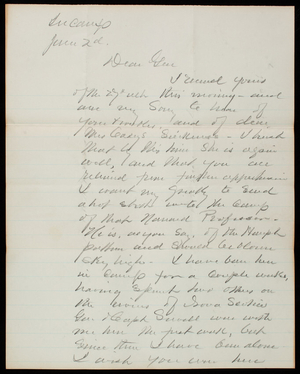 In Camp
June 2d
Dear Gen
I received yours
of the 29th ult this morning — and
am very sorry to hear of
your trouble, and of dear
Mrs Casey's sickness — I trust
that by this time she is again
well, and that you are
relieved from further apprehension
I want very quickly to send
a hot shot into the Camp
of that Harvard Professor —
He is, as you say, of the
pattern and should be blown
sky high — I have been here
in Camp for a couple weeks,
having spent two others on
the
Gen & Capt were with
me here the first week, but
since then I have been alone
I wish you were here